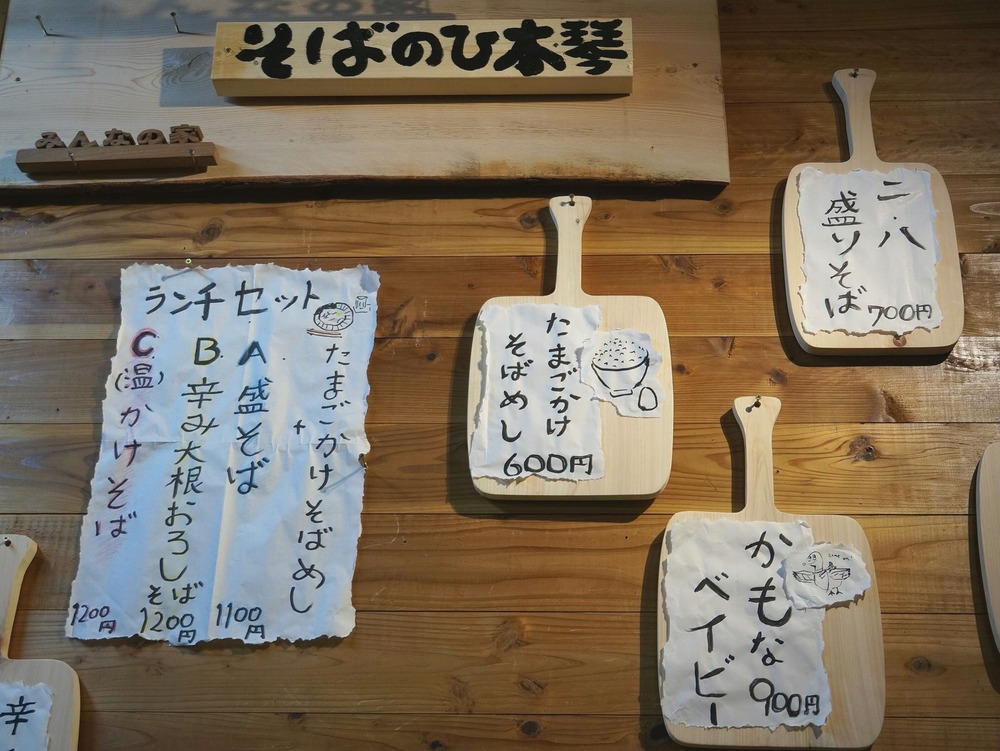 そばのひ本琴
みんなの家
ランチセット
たまごかけそばめし
+
A 盛そば
1100円
B 辛み大根おろしそば
1200円
C (温)かけそば
1200円
たまごかけ
そばめし
600円
二・八
盛りそば
700円
かもな
ベイビー
900円
辛